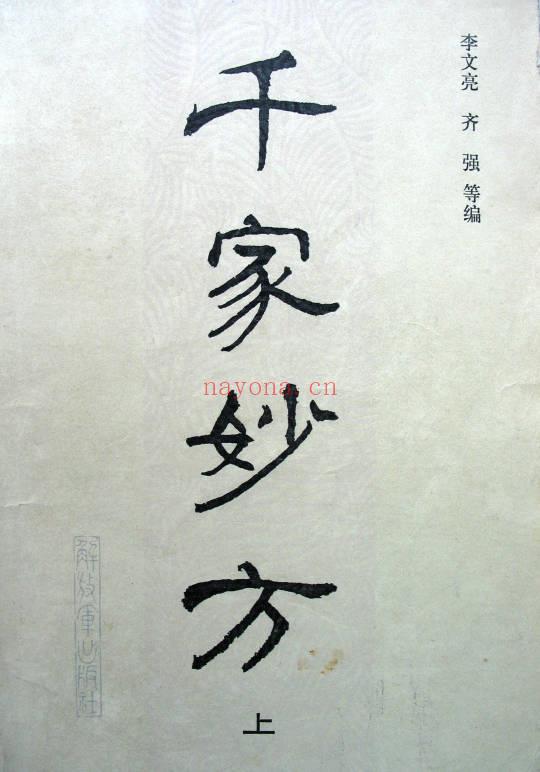 李文亮 齐强等编
千家妙方
上
解放军出版社
nayona.cn